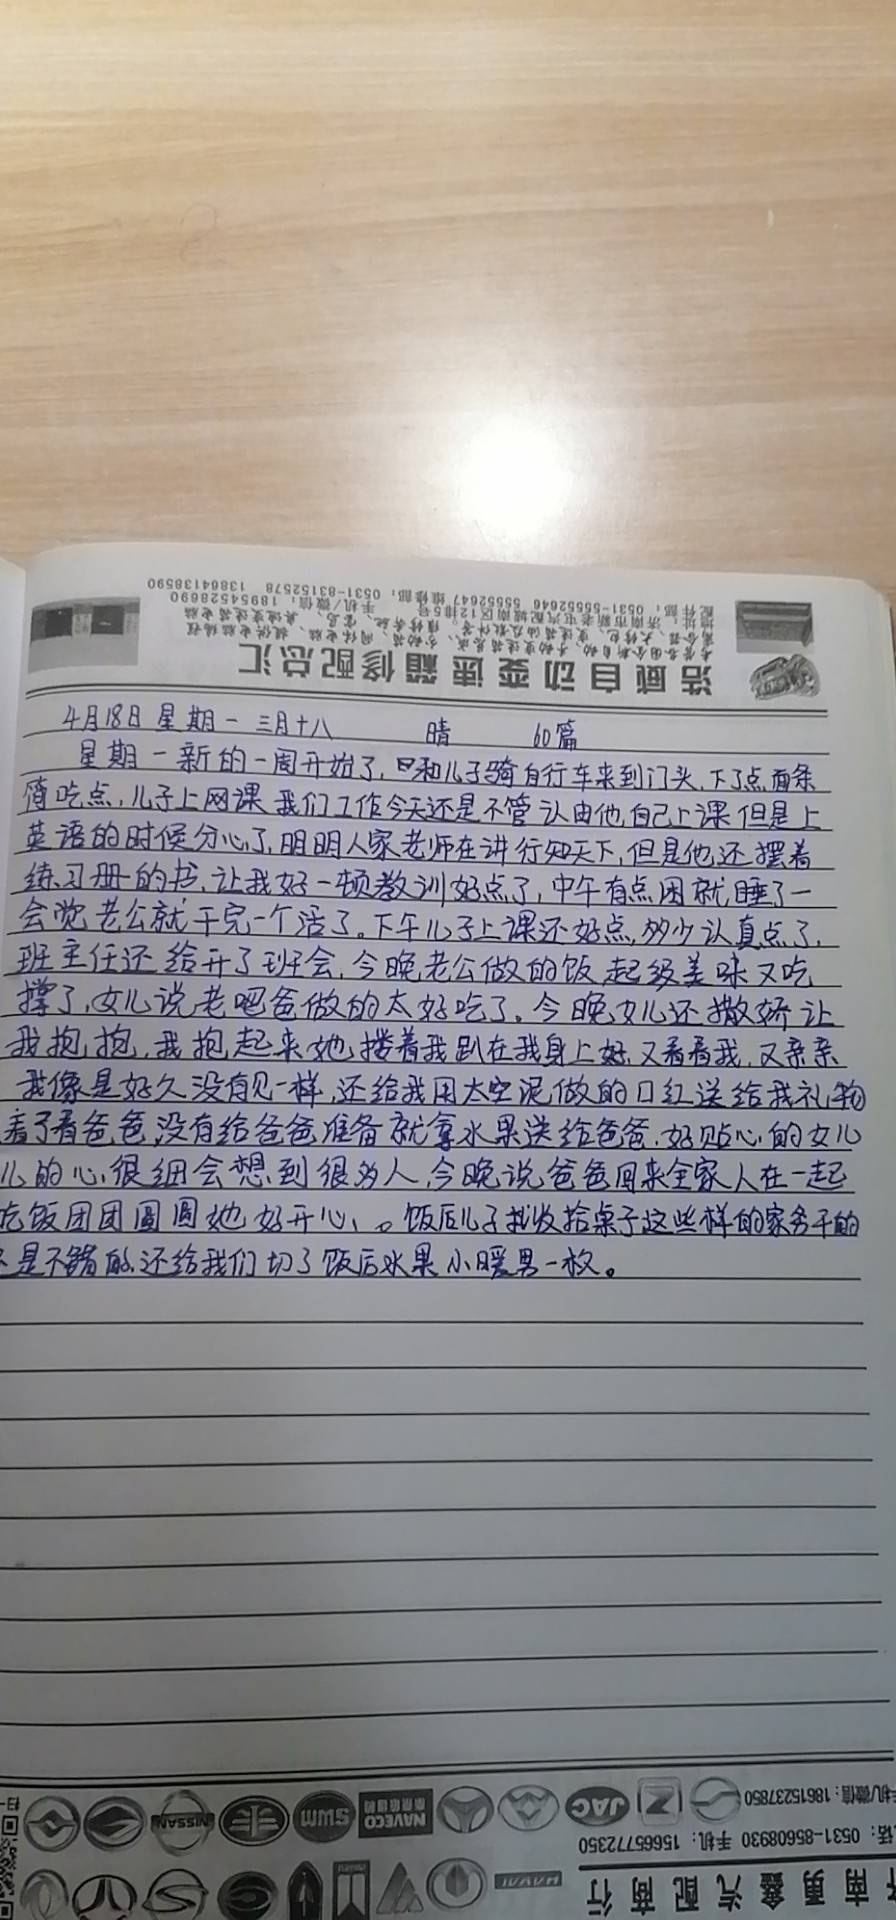 浩威自动变速箱修配总汇
地址：济南市新老屯汽配城南区112排5号
配件部：0531-55552646 55552647 维修部：0531-83152578 13864138590
手机/微信：18954528690
4月18日 星期一 三月十八 晴 60篇
星期一新的一周开始了,和儿子骑自行车来到门头,下了点面条
值吃点,儿子上网课 我们工作今天还是不管认由他,自己上课但是上
英语的时候分心了,明明人家老师在讲行知天下,但是他还摆着
练习册的书,让我好一顿教训好点了,中午有点困就睡了一
会觉 老公就干完一个活了。下午儿子上课还好点,多少认真点了,
班主任还给开了班会,今晚老公做的饭 起级美味又吃
撑了,女儿说老吧爸做的太好吃了。今晚女儿还撒娇让
我抱抱,我抱起来她搂着我趴在我身上好,又看看我,又亲亲
我像是好久没有见一样,还给我用太空泥做的口红送给我礼物
看了看爸爸,没有给爸爸准备就拿水果送给爸爸,好贴心的女儿
儿的心很细会想到很多人,今晚说爸爸回来全家人在一起
吃饭团团圆圆她好开心。饭后儿子收拾桌子这些样的家务干的
是不错的,还给我们切了饭后水果 小暖男一枚。
南勇鑫汽配商行
话：0531-85608930 手机：15665772350
机/微信：18615237850
JAC
NAVECO
SWM
NISSAN
HAVAL